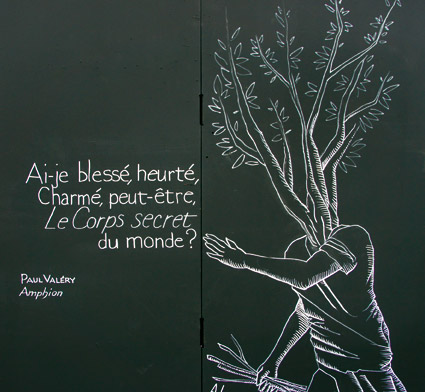 Ai-je blessé, heurté,
Charmé, peut-être,
Le Corps secret
du monde?
PAUL VALÉRY
Amphion